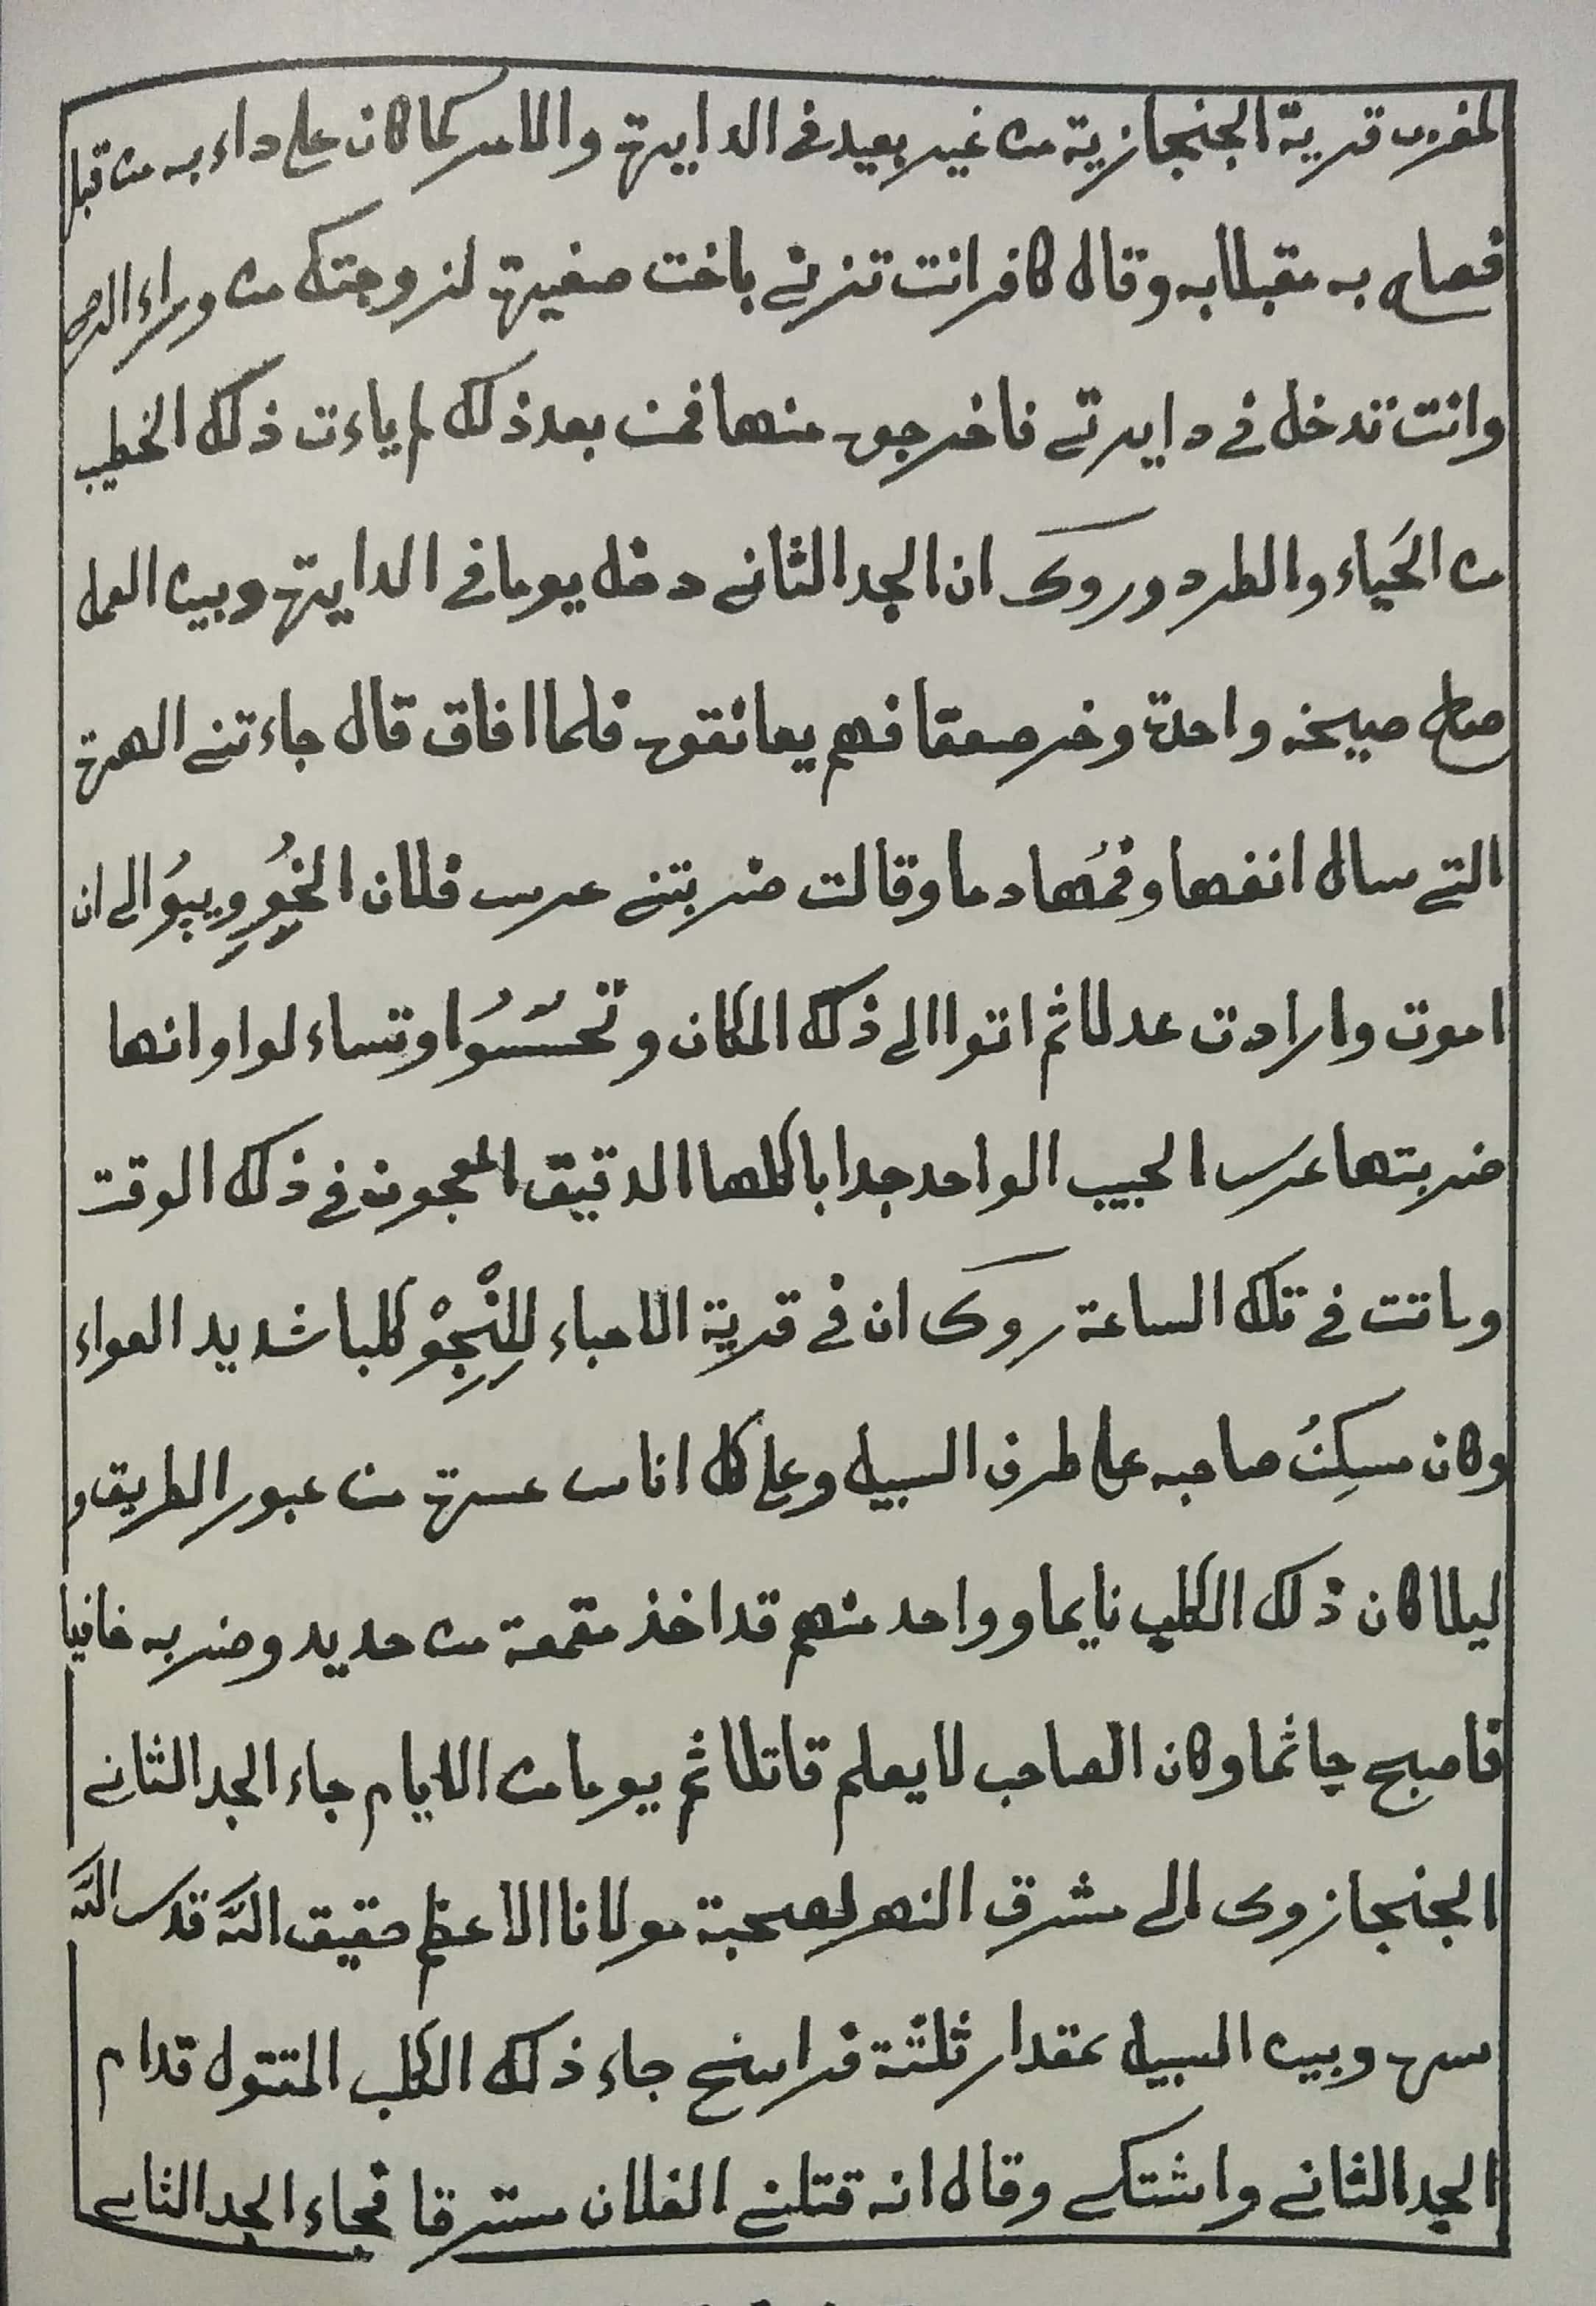 المغرب قرية الجنجازية من غير بعيد في الدايرة والامر كما كان على داءبه من قبل
فصاح به مقبلا به وقال كافر انت تزني باخت صغيرة لزوجتك من وراء
وانت تدخل في دايرتي فاخرجوه منها فمن بعد ذلك لم ياءت ذلك الخطيب
من الحَياء والطرد وروى ان الجد الثاني دخل يوما في الدايرة وبين العمل
صاح صيحة واحدة وخر صعقا فهم يعانقوه فلما افاق قال جاءتني الهرة
التي سال انفها وفمُها دما وقالت ضربتني عرس فلان الى ان
اموت وارادت عدلا ثم اتوا الى ذلك المكان وتحسّسُوا وتساءلوا وانها
ضربتها عرس الحبيب الواحد جدا باكلها الدقيق المعجون في ذلك الوقت
وماتت في تلك الساعة روى ان في قرية الاحباء لِلنْجِوْ كلبا شديد العواء
وكان مسكِنُ صاحبه على طرف السبيل وعلى كل اناس عسرة من عبور الطريق و
ليلا كان ذلك الكلب نايما وواحد منهم قد اخذ مقمعة من حديد وضربه خافيا
فاصبح جاثما وكان الصاحب لا يعلم قاتلا ثم يوما من الايام جاء الجد الثاني
الجنجازوى الى مشرق النهر لصحبة مولانا الاعظم حقيق الله قدس الله
سره وبين السبيل بمقدار ثلثة فراسخ جاء ذلك الكلب المقتول قدام
الجد الثاني واشتكى وقال انه قتلني الفلان مسترقا فجاء الجد الثاني